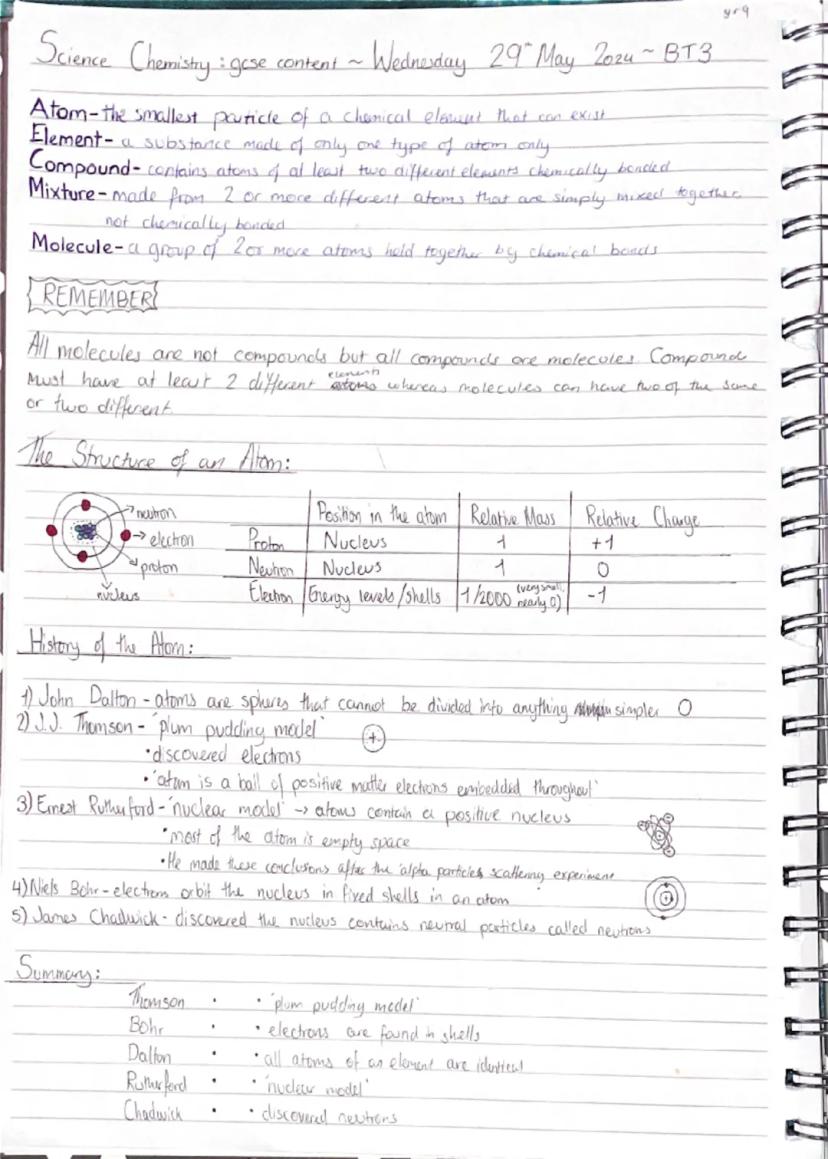 yr9
Science Chemistry : gcse content ~ Wednesday 29th May 2024 ~ BT3
Atom - the smallest particle of a chemical element that can exist
Element - a substance made of only one type of atom only
Compound - contains atoms of at least two different elements chemically bonded
Mixture - made from 2 or more different atoms that are simply mixed together
not chemically bonded
Molecule - a group of 2 or more atoms held together by chemical bonds
REMEMBER
All molecules are not compounds but all compounds are molecules. Compound
must have at least 2 different elements whereas molecules can have two of the same
or two different.
The Structure of an Atom:
neutron
electron
proton
nucleus
Position in the atom Relative Mass Relative Charge
Proton Nucleus 1 +1
Neutron Nucleus 1 0
Electron Energy levels/shells 1/2000 (very small, nearly 0) -1
History of the Atom:
1) John Dalton - atoms are spheres that cannot be divided into anything simpler
2) J.J. Thomson - 'plum pudding model' +
• discovered electrons
• 'atom is a ball of positive matter electrons embedded throughout'
3) Ernest Rutherford - 'nuclear model' → atoms contain a positive nucleus
• most of the atom is empty space
• He made these conclusions after the 'alpha particles scattering experiment
4) Niels Bohr - electrons orbit the nucleus in fixed shells in an atom
5) James Chadwick - discovered the nucleus contains neutral particles called neutrons
Summary:
Thomson • • 'plum pudding model'
Bohr • • electrons are found in shells
Dalton • • all atoms of an element are identical
Rutherford • • 'nuclear model'
Chadwick • • discovered neutrons